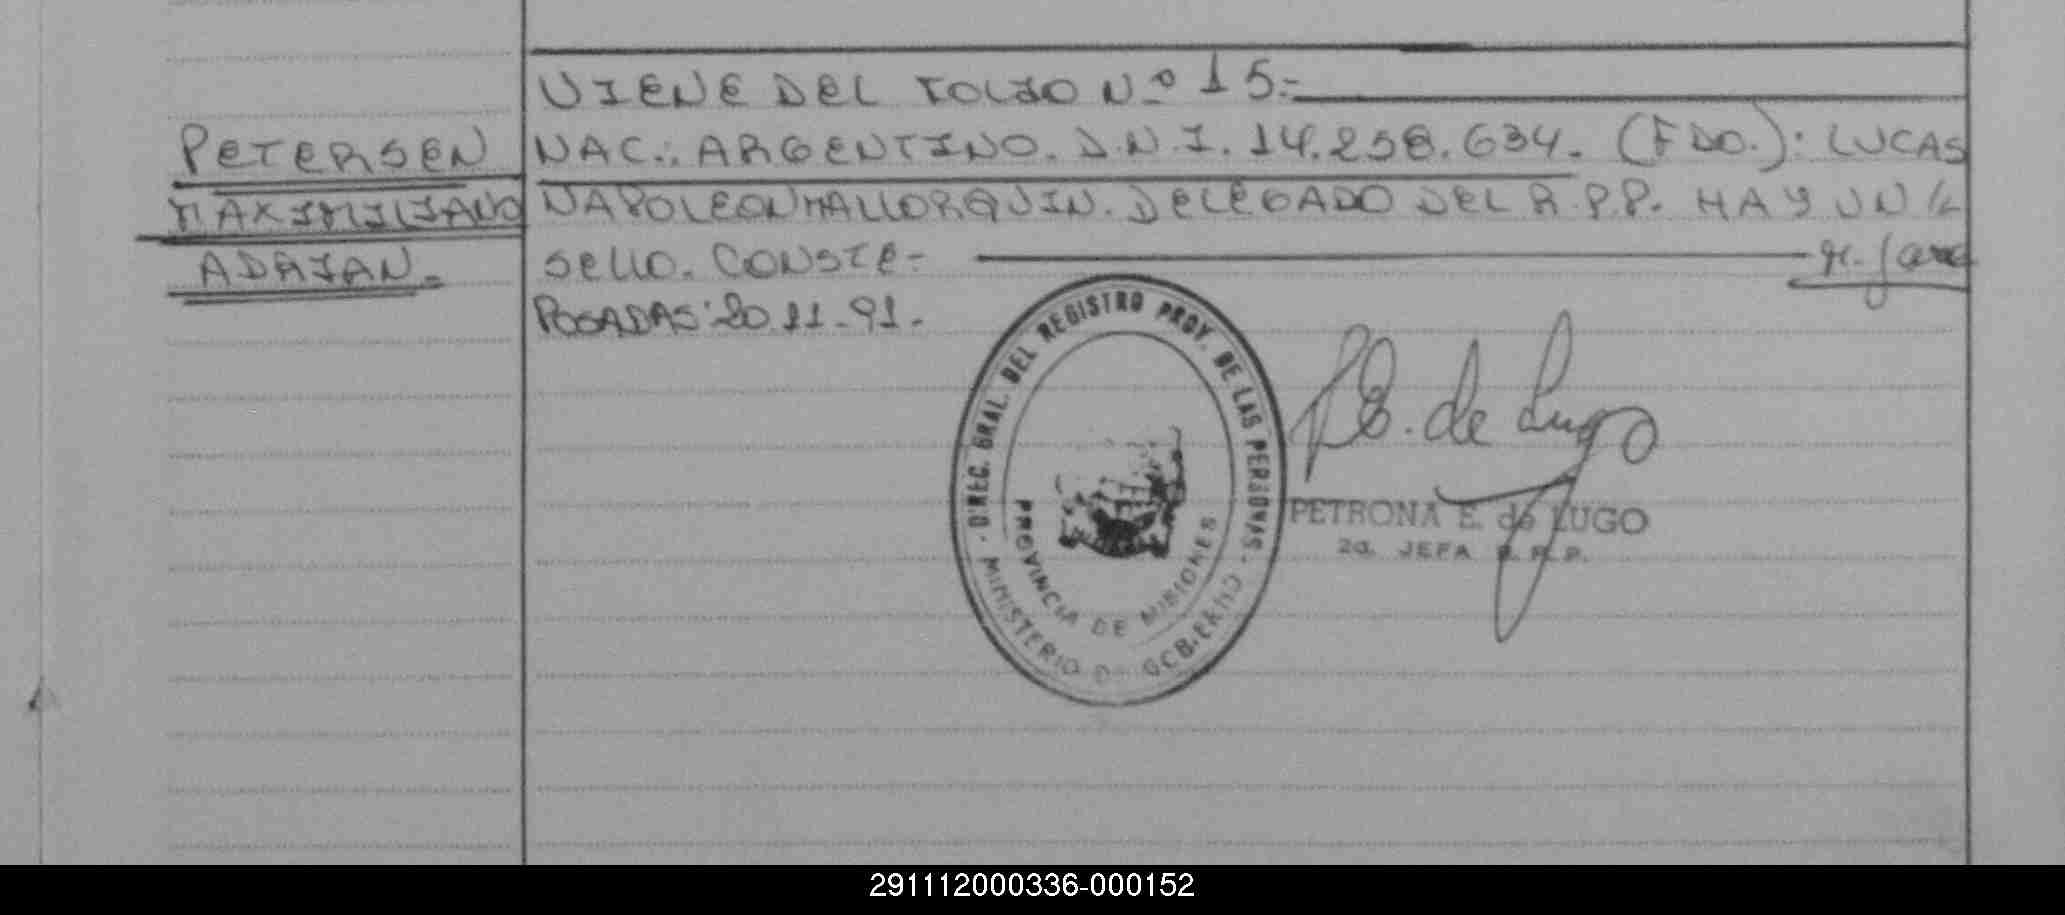 VIENE DEL FOLIO N.º 15.-
PETERSEN
MAXIMILIANO
ADRIAN.-
NAC.: ARGENTINO. D.N.I. 14.258.634. (FDO.): LUCAS
NAPOLEON MALLORQUIN. DELEGADO DEL R.P.P. HAY UN
SELLO. CONSTE-
POSADAS: 20.11.91.
DIREC. GRAL. DEL REGISTRO PROV. DE LAS PERSONAS
PROVINCIA DE MISIONES
MINISTERIO DE GOBIERNO
P.E. de Lugo
PETRONA E. de LUGO
2a. JEFA R.R.P.
291112000336-000152